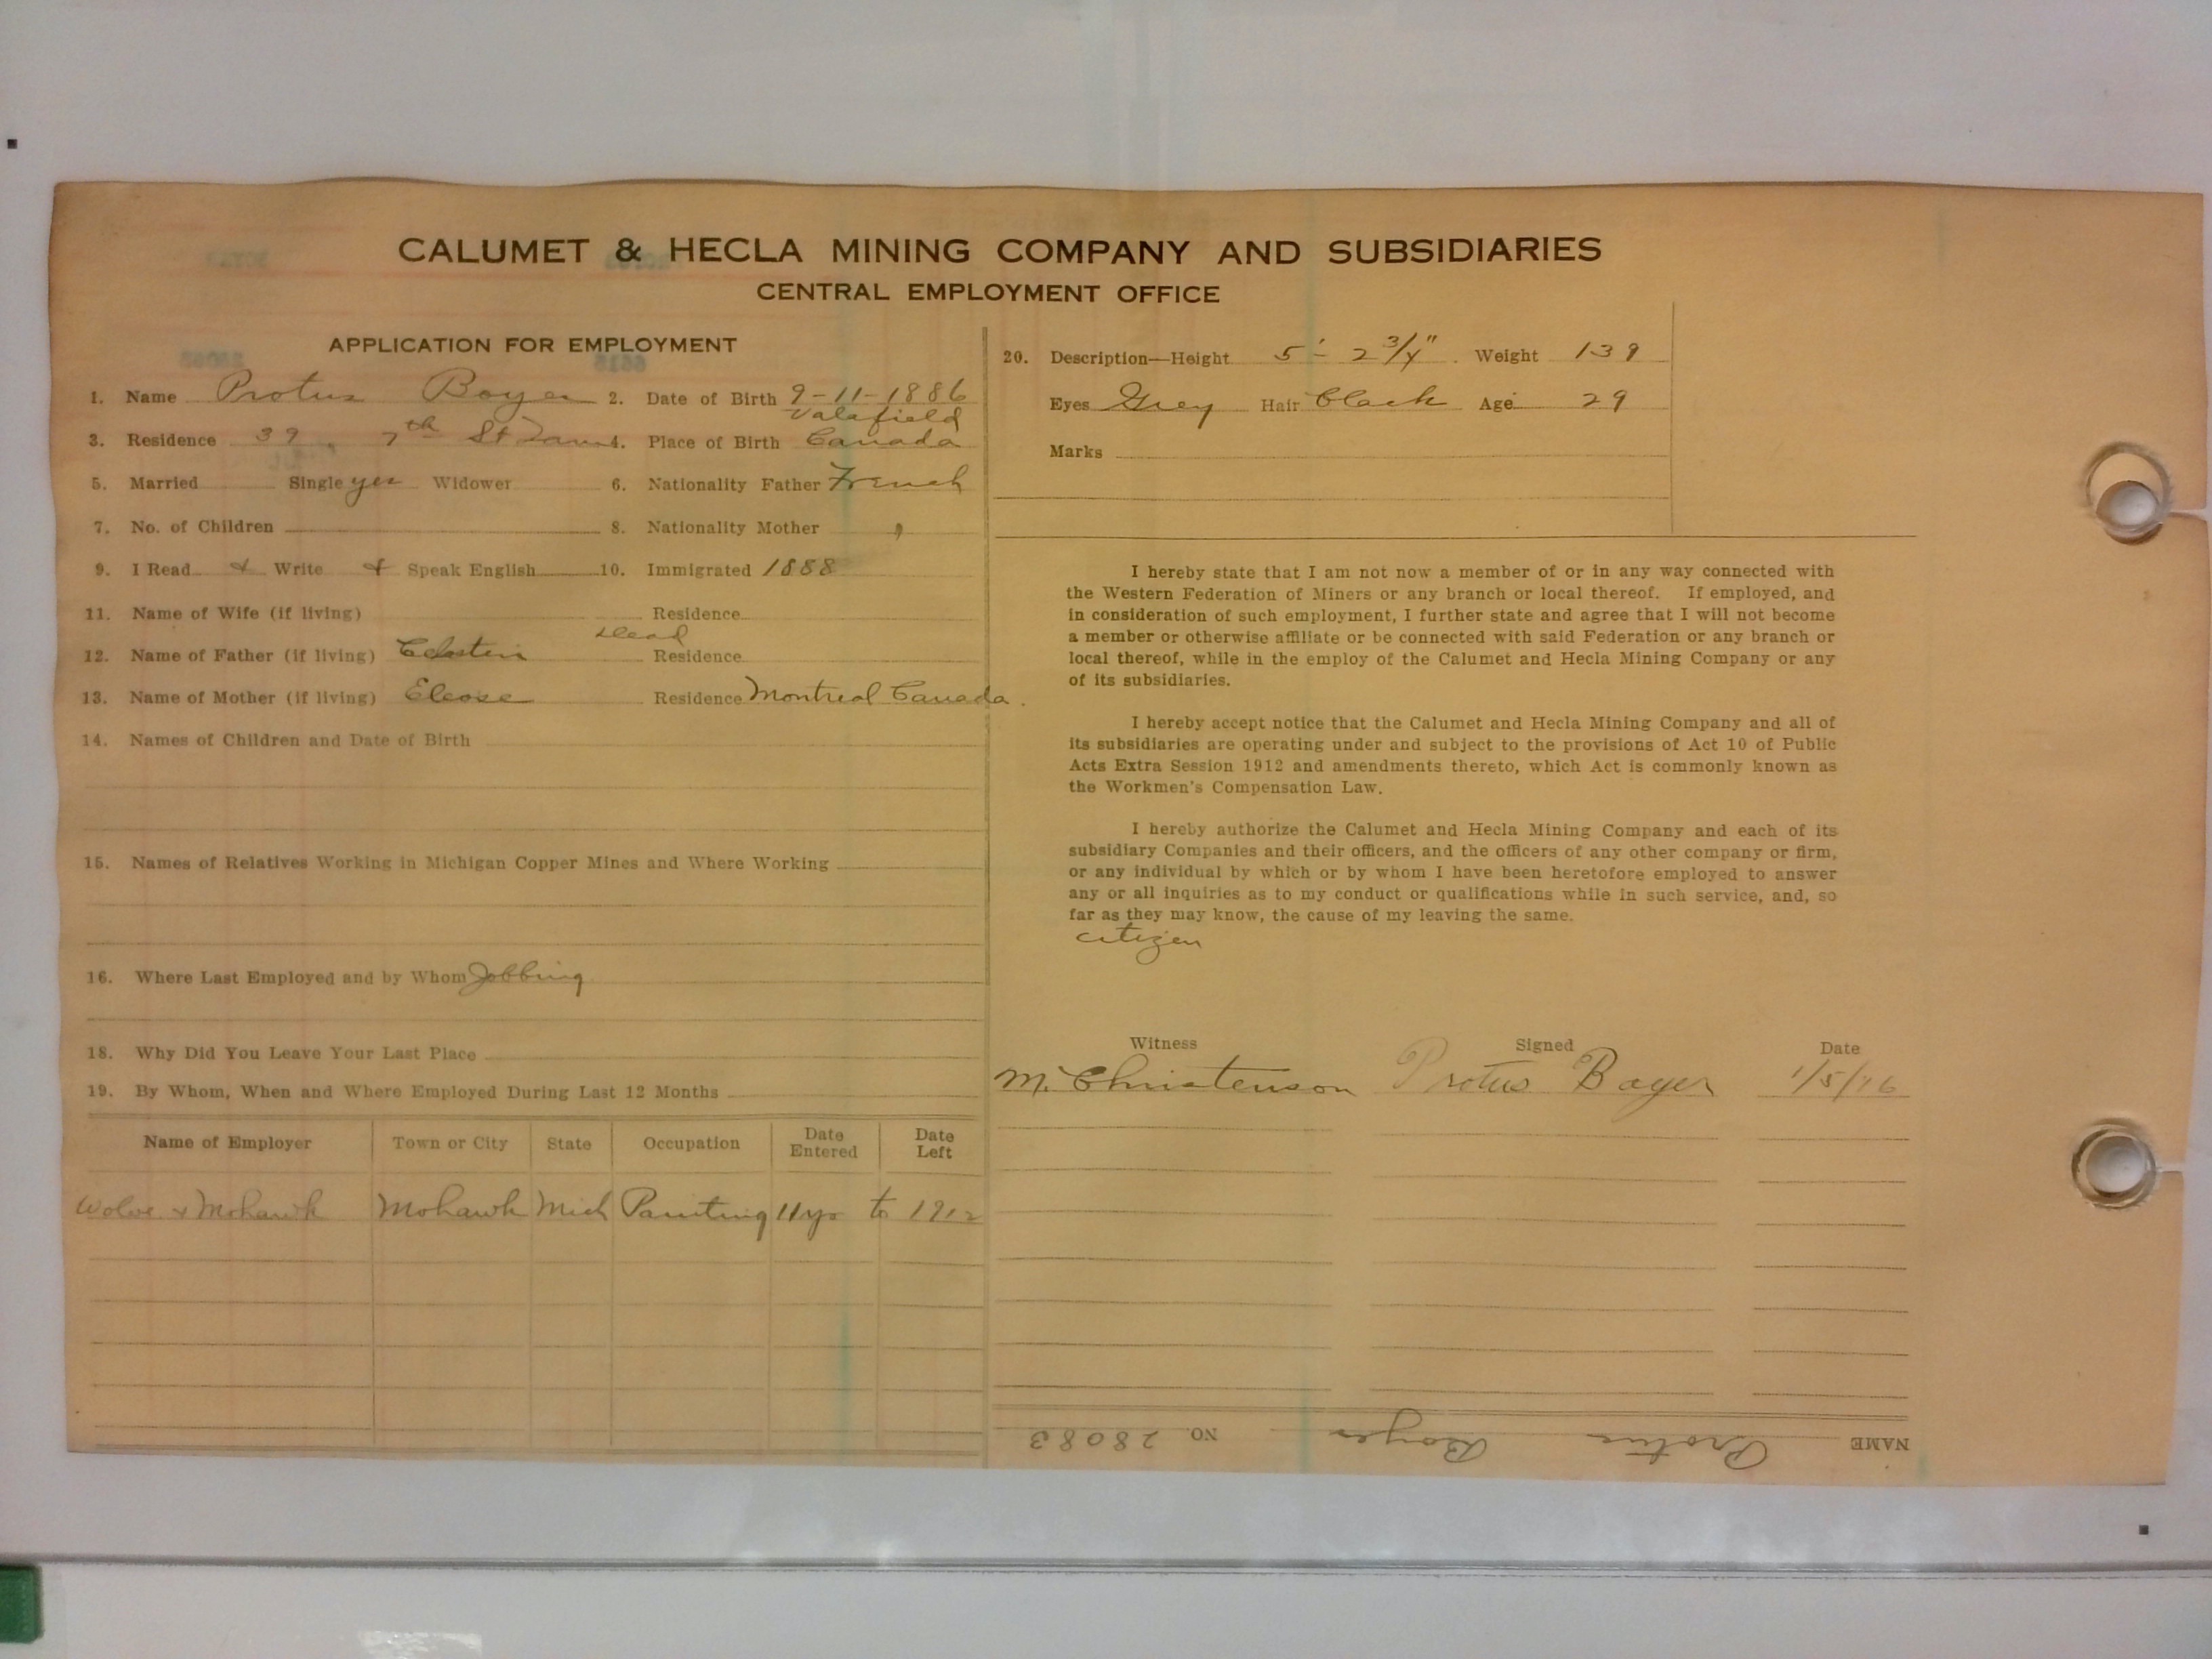 CALUMET & HECLA MINING COMPANY AND SUBSIDIARIES
CENTRAL EMPLOYMENT OFFICE
APPLICATION FOR EMPLOYMENT
1. Name Protus Boyer 2. Date of Birth 9-11-1886
Valafield
3. Residence 39 7th St 4. Place of Birth Canada
5. Married Single yes Widower 6. Nationality Father French
7. No. of Children 8. Nationality Mother "
9. I Read & Write & Speak English 10. Immigrated 1888
11. Name of Wife (if living) Residence
12. Name of Father (if living) Celestin dead Residence
13. Name of Mother (if living) Residence Montreal Canada.
14. Names of Children and Date of Birth
15. Names of Relatives Working in Michigan Copper Mines and Where Working
16. Where Last Employed and by Whom Jobbing
18. Why Did You Leave Your Last Place
19. By Whom, When and Where Employed During Last 12 Months
Name of Employer Town or City State Occupation Date Entered Date Left
Wolve & Mohawk Mohawk Mich Painting 11 yrs to 1912
20. Description—Height 5'-2 3/4" Weight 139
Eyes Grey Hair Black Age 29
Marks
I hereby state that I am not now a member of or in any way connected with
the Western Federation of Miners or any branch or local thereof. If employed, and
in consideration of such employment, I further state and agree that I will not become
a member or otherwise affiliate or be connected with said Federation or any branch or
local thereof, while in the employ of the Calumet and Hecla Mining Company or any
of its subsidiaries.
I hereby accept notice that the Calumet and Hecla Mining Company and all of
its subsidiaries are operating under and subject to the provisions of Act 10 of Public
Acts Extra Session 1912 and amendments thereto, which Act is commonly known as
the Workmen's Compensation Law.
I hereby authorize the Calumet and Hecla Mining Company and each of its
subsidiary Companies and their officers, and the officers of any other company or firm,
or any individual by which or by whom I have been heretofore employed to answer
any or all inquiries as to my conduct or qualifications while in such service, and, so
far as they may know, the cause of my leaving the same.
citizen
Witness Signed Date
M. Christenson Protus Boyer 1/5/16
NAME Protus Boyer NO 28083